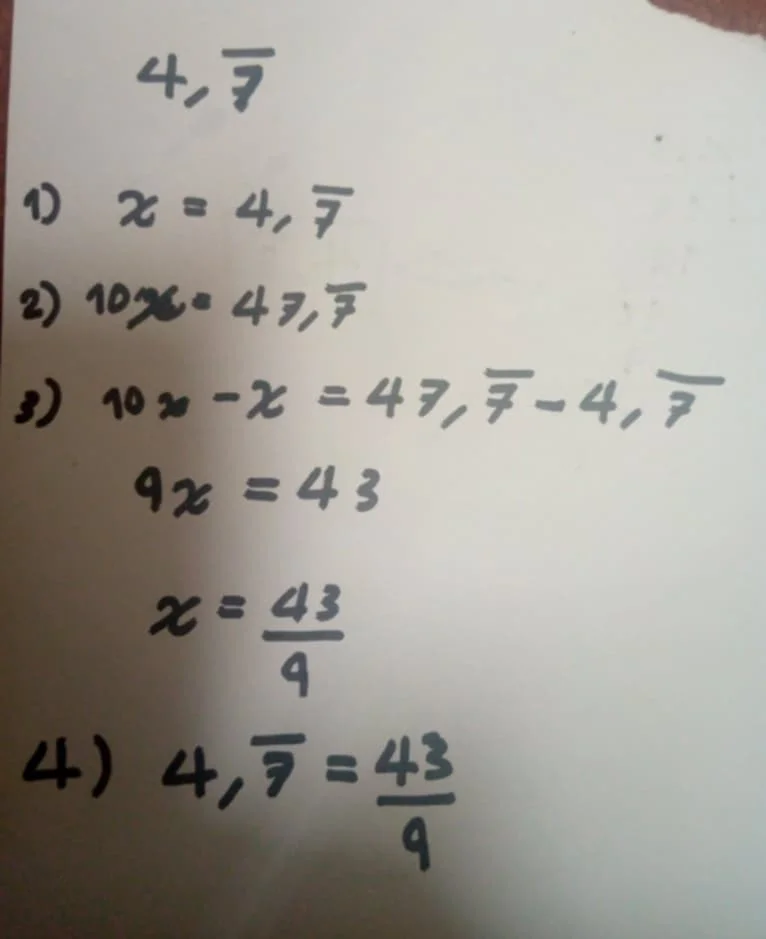 4,7̅
1) x = 4,7̅
2) 10x = 47,7̅
3) 10x - x = 47,7̅ - 4,7̅
9x = 43
x = 43/9
4) 4,7̅ = 43/9